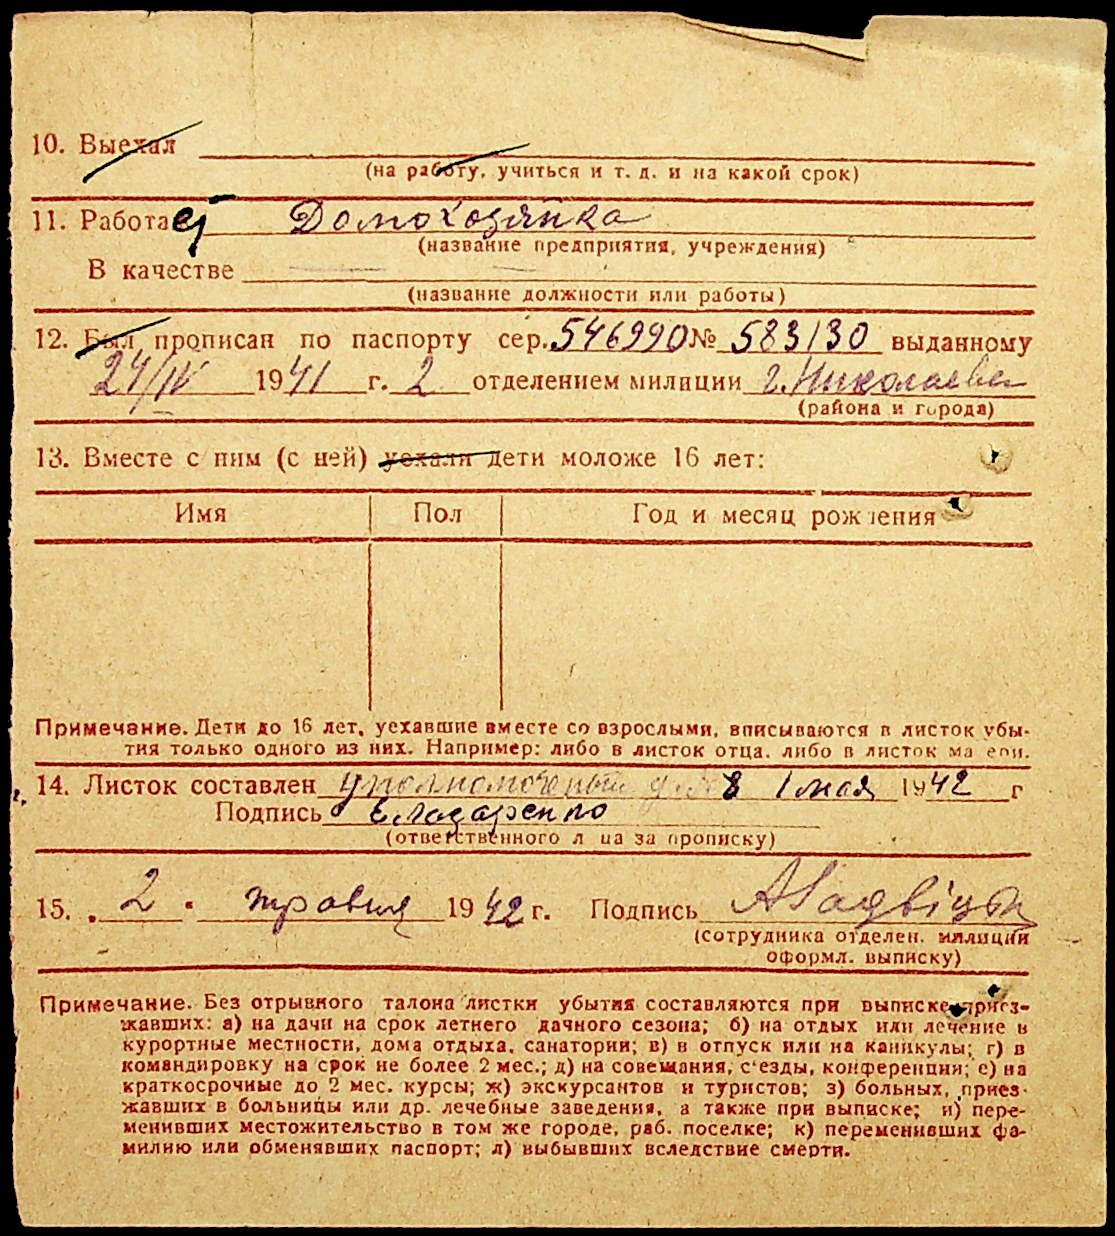 10. Выехал
(на работу, учиться и т. д. и на какой срок)
11. Работает Домохозяйка
(название предприятия, учреждения)
В качестве
(название должности или работы)
12. Был прописан по паспорту сер. 546990 № 583130 выданному
24/IV 1941 г. 2 отделением милиции г. Николаева
(района и города)
13. Вместе с ним (с ней) уехали дети моложе 16 лет:
Имя Пол Год и месяц рождения
Примечание. Дети до 16 лет, уехавшие вместе со взрослыми, вписываются в листок убы-
тия только одного из них. Например: либо в листок отца, либо в листок ма ери.
14. Листок составлен 8 1 мая 1942 г
Подпись Елазаренко
(ответственного л ца за прописку)
15. 2 травня 1942 г. Подпись
(сотрудника отделен. милиции
оформл. выписку)
Примечание. Без отрывного талона листки убытия составляются при выписке приез-
жавших: а) на дачи на срок летнего дачного сезона; б) на отдых или лечение в
курортные местности, дома отдыха, санатории; в) в отпуск или на каникулы; г) в
командировку на срок не более 2 мес.; д) на совещания, с'езды, конференции; е) на
краткосрочные до 2 мес. курсы; ж) экскурсантов и туристов; з) больных, приез-
жавших в больницы или др. лечебные заведения, а также при выписке; и) пере-
менивших местожительство в том же городе, раб. поселке; к) переменивших фа-
милию или обменявших паспорт; л) выбывших вследствие смерти.